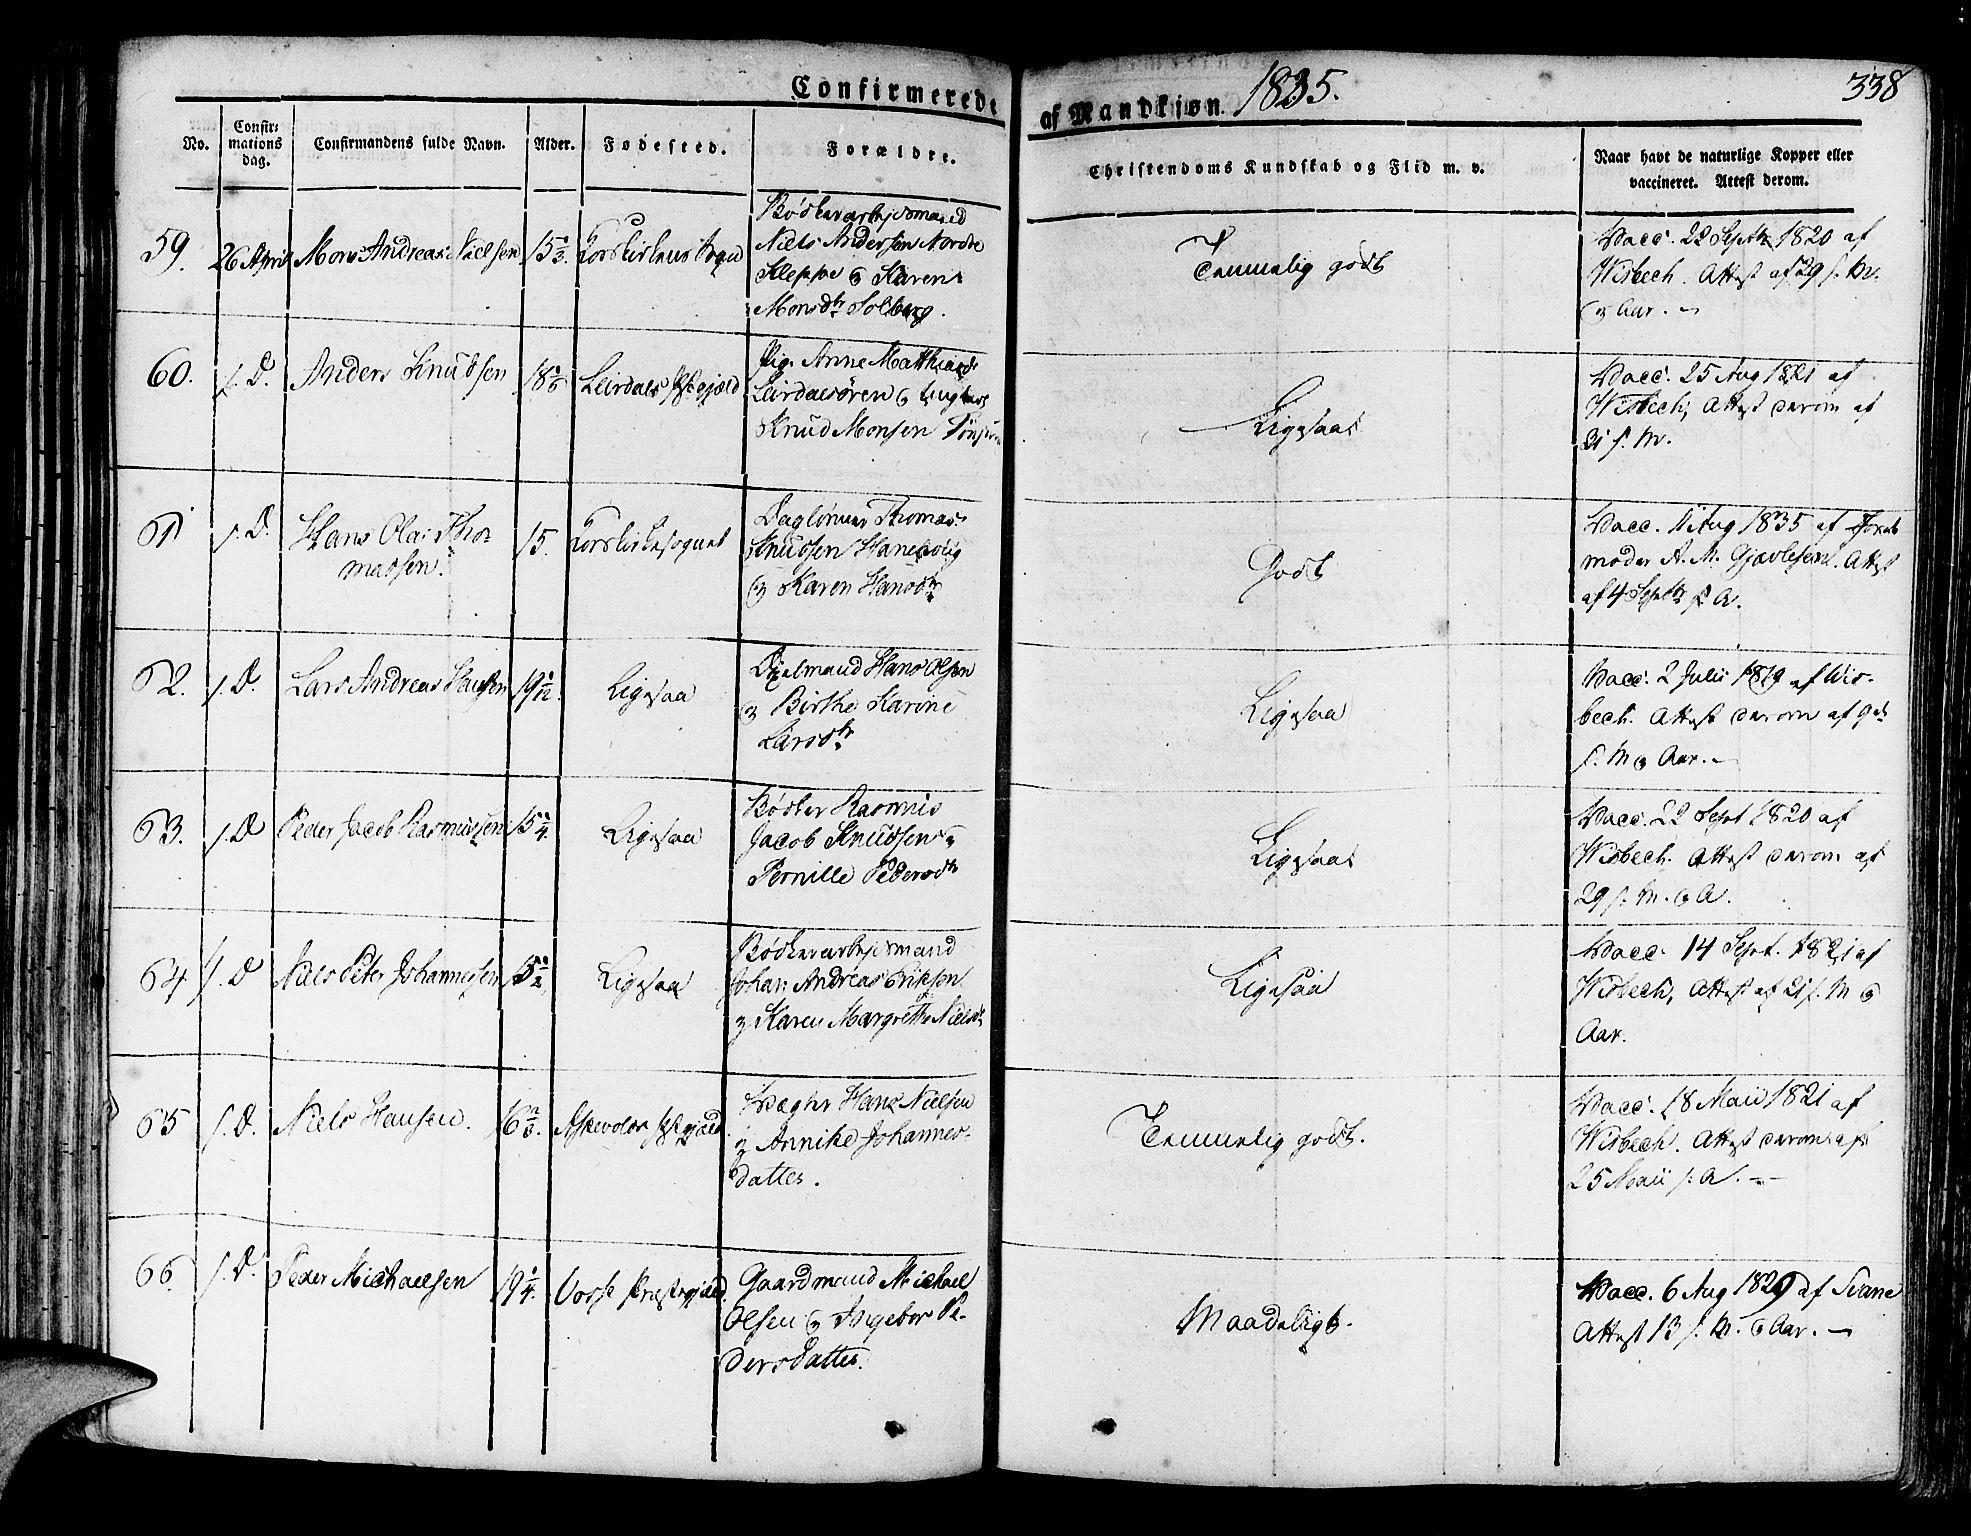 Confirmerede af Mandkjøn. 1835. 338
No. Confir-mations dag. Confirmandens fulde Navn. Alder. Fødested. Forældre. Christendoms Kundskab og Flid m. v. Naar havt de naturlige Kopper eller vaccineret. Attest derom.
59. 26 April Mons Andreas Nielsen 15 1/3. Korskirkens Sogn
Bødkerarbejdsmand
Niels Andersen Nordre
Kleppe og Karen
Monsdtr Solberg.
Temmelig godt
Vacc. 22 Septbr 1820 af
Wisbech. Attest af 29 s. M.
og Aar.
60. s. D. Anders Knudsen 18 1/6 Leirdals Præstegjæld
Pig. Anne Matthiasd.
Leirdalsøren og Ungkarl
Knud Monsen
Ligesaa
Vacc. 25 Aug 1821 af
Wisbech, Attest derom af
31 s. M.
61 s. D. Hans Olai Tho-
massen. 15. Korskirkesognet
Daglønner Thomas
Knudsen
og Karen Hansdtr
Godt
Vacc. 11 Aug 1835 af Jorde
moder A. M. Gjævlesen. Attest
af 4 Septbr s. A.
62. s. D. Lars Andreas Hansen 19 1/12. Ligesaa
Hans Olsen
og Birthe Karine
Larsdtr
Ligesaa
Vacc. 2 Julii 1819 af Wis-
bech. Attest derom af 9de
s. M og Aar.
63. s. D Peder Jacob Rasmussen 15 1/4. Ligesaa
Bødker Rasmus
Jacob Knudsen og
Pernille Pedersdtr
Ligesaa
Vacc. 22 Sept 1820 af
Wisbech. Attest derom af
29 s. M. og A.
64 s. D Niels Peter Johannesen 15 1/2, Ligesaa
Bødkerarbejdsmand
Johan Andreas Erikson
og Karen Margrethe Nielsdtr
Ligesaa
Vacc. 14 Sept. 1821 af
Wisbech, Attest af 21 s. M og
Aar.
65 s. D. Niels Hansen. 16 2/3. Askevolds Præstegjæld.
Vægter Hans Nielsen
og Annike Johannes-
datter.
Temmelig godt.
Vacc. 18 Maii 1821 af
Wisbech. Attest derom af
25 Maii s. A.
66 s. D. Peder Michaelsen 19 1/4. Vosse Præstegjæld.
Gaardmand Michael
Olsen og Ingebor Pe-
dersdatter.
Maadeligt.
Vacc. 6 Aug 1829 af
Attest 13 s. M. og Aar.